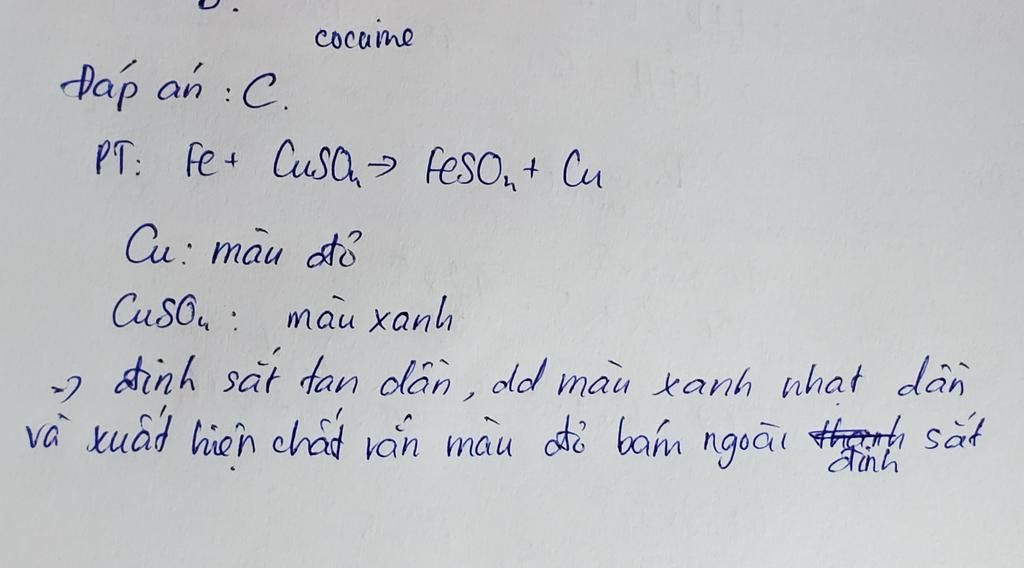 cocaine
Đáp án : C.
PT: Fe + CuSO₄ → FeSO₄ + Cu
Cu: màu đỏ
CuSO₄ : màu xanh
→ đinh sắt tan dần, dd màu xanh nhạt dần
và xuất hiện chất rắn màu đỏ bám ngoài thanh đinh sắt